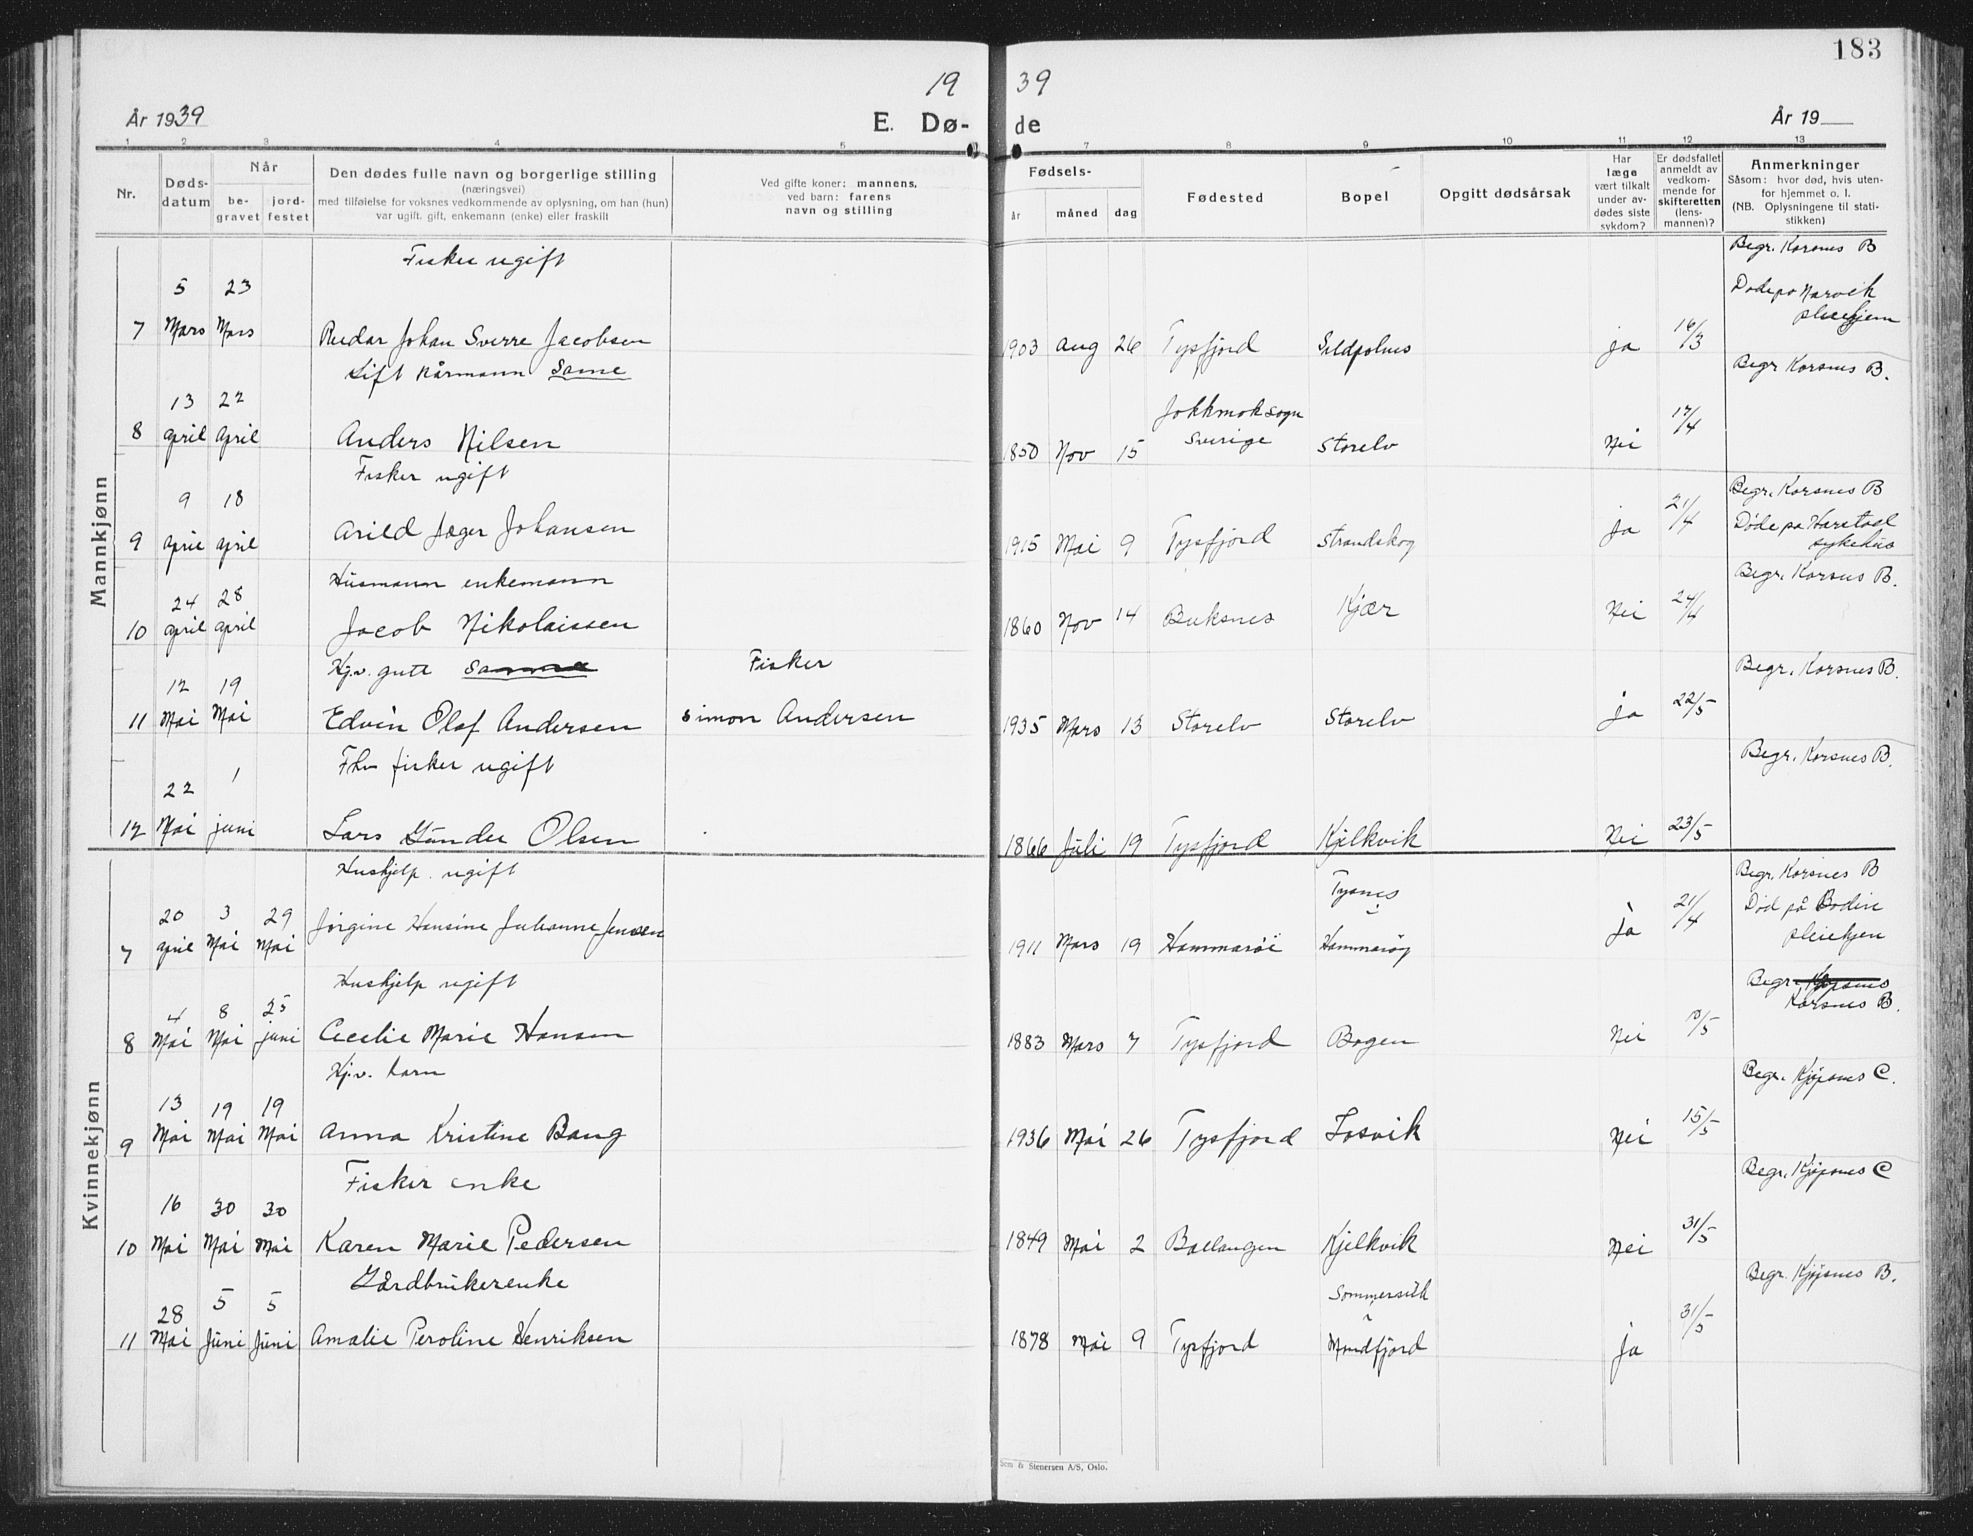 183
19 39
År 1939
E. Dø- de
År 19
1 2 3 4 5 7 8 9 10 11 12 13
Nr.
Døds-datum
Når
be-gravet
jord-festet
Den dødes fulle navn og borgerlige stilling
(næringsvei)
med tilføielse for voksnes vedkommende av oplysning, om han (hun)
var ugift, gift, enkemann (enke) eller fraskilt
Ved gifte koner: mannens,
ved barn: farens
navn og stilling
Fødsels-
år måned dag
Fødested
Bopel
Opgitt dødsårsak
Har
læge
vært tilkalt
under av-
dødes siste
sykdom?
Er dødsfallet
anmeldt av
vedkom-
mende for
skifteretten
(lens-
mannen)?
Anmerkninger
Såsom: hvor død, hvis uten-
for hjemmet o. l.
(NB. Oplysningene til stati-
stikken)
Mannkjønn
Fisker ugift Begr. Korsnes B
5 23 Døde på Narvik
pleiehjem
7 Mars Mars Reidar Johan Sverre Jacobsen 1903 Aug 26 Tysfjord ja 16/3
Gift Kårmann Same Begr Korsnes B.
13 22 Jokkmok sogn
8 april april Anders Nilsen 1850 Nov 15 Sverige Storelv Nei 17/4
Fisker ugift Begr. Korsnes B
9 18 Døde på Harstad
sykehus
9 april april Arild Jæger Johansen 1915 Mai 9 Tysfjord Strandskog ja 21/4
Husmann enkemann Begr. Korsnes B.
24 28
10 april april Jacob Nikolaissen 1860 Nov 14 Buksnes Kjær Nei 24/4
Kj.v. gutt Fisker Begr. Korsnes B.
12 19
11 Mai Mai Edvin Olaf Andersen Simon Andersen 1935 Mars 13 Storelv Storelv ja 22/5
Fhv fisker ugift Begr. Korsnes B.
22 1
12 Mai juni Lars Gunder Olsen 1866 Juli 19 Tysfjord Kjelkvik Nei 23/5
Kvinnekjønn
Hushjelp ugift Tysnes Begr. Korsnes B
20 3 29 Død på Bodin
pleiehjem
7 april Mai Mai Jørgine Hansine Julianne Jensen 1911 Mars 19 Hammarøi Hammarøy ja 21/4
Hushjelp ugift Begr. Kjøpsnes
4 8 25 Korsnes B.
8 Mai Mai juni Cecelie Marie Hansen 1883 Mars 7 Tysfjord Bogen Nei
Kj.v. barn Begr. Kjøpsnes C.
13 19 19
9 Mai Mai Mai Anna Kristine Bang 1936 Mai 26 Tysfjord Fosvik Nei 15/5
Fisker enke Begr. Kjøpsnes C
16 30 30
10 Mai Mai Mai Karen Marie Pedersen 1849 Mai 2 Ballangen Kjelkvik Nei 31/5
Gårdbrukerenke Sommersæth Begr. Kjøpsnes B.
28 5 5
11 Mai Juni Juni Amalie Peroline Henriksen 1878 Mai 9 Tysfjord i Mundfjord ja 31/5
Sem & Stenersen A/S, Oslo.